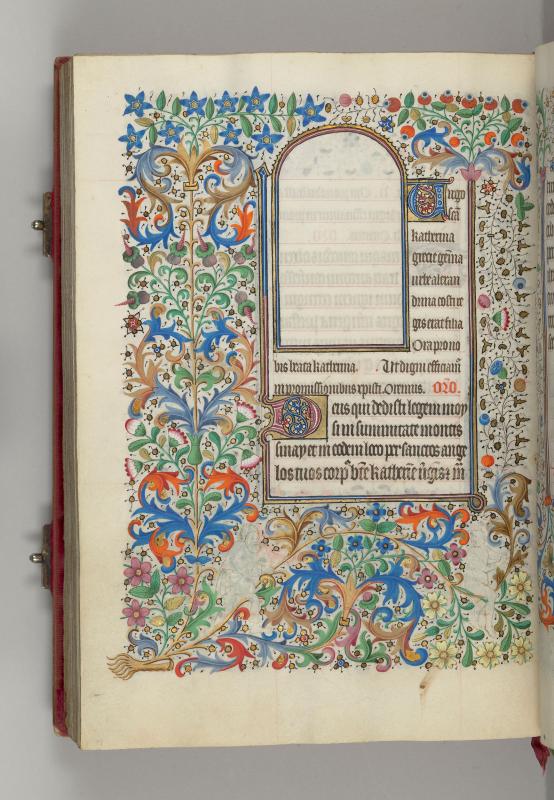 Virgo
sc̄a
katherina
grecie gē̄ma
urbe alexan
drina costi re
gis erat filia
Ora pro no
bis beata katherina. Ut digni efficiam̄
in promissionibus xp̄isti. Oremus. Or̄o.
Deus qui dedisti legem moy
si in summitate montis
sinay et in eodem loco per sanctos ange
los tuos corp9 bt̄e katherīe